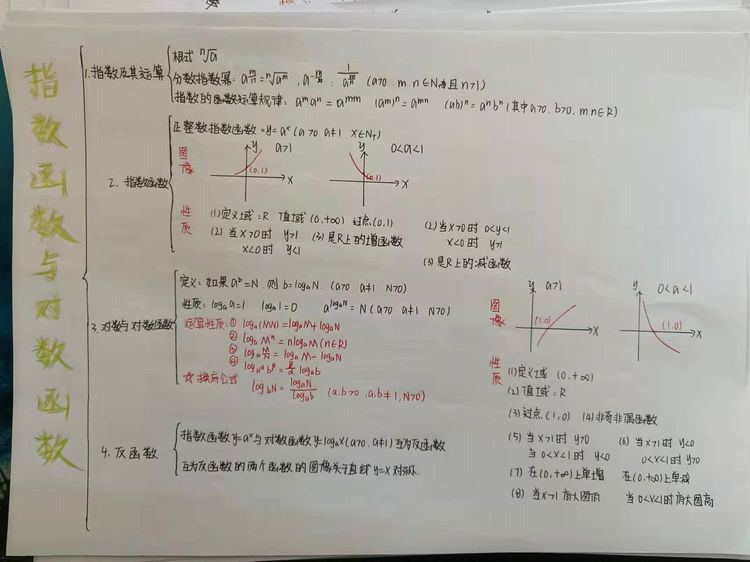 指数函数与对数函数
1.指数及其运算
根式 ⁿ√a
分数指数幂: a^(m/n)=ⁿ√a^m , a^(-m/n): 1/a^(m/n) (a>0 m n∈N 且n>1)
指数的函数运算规律: a^m a^n = a^(m+n) (a^m)^n = a^(mn) (ab)^n = a^n b^n (其中a>0, b>0, m n∈R)
2. 指数函数
正整数指数函数 y=a^x (a>0 a≠1 x∈N+)
图像
y a>1
(0,1)
x
y 0<a<1
(0,1)
x
性质
(1)定义域=R 值域(0,+∞) 过点(0,1)
(2)当x>0时 y>1 (3)是R上的增函数
x<0时 y<1
(2)当x>0时 0<y<1
x<0时 y>1
(3)是R上的减函数
3.对数与对数函数
定义:如果 a^b=N, 则 b=log_a N. (a>0 a≠1 N>0)
性质:log_a a=1 log_a 1=0 a^(log_a N) = N (a>0 a≠1 N>0)
运算性质:① log_a(MN)=log_a M+log_a N
② log_a M^n = nlog_a M (n∈R)
③ log_a M/N = log_a M - log_a N
换底公式
log_b N= log_a N/log_a b (a.b>0 ,a.b≠1,N>0)
图像
y a>1
(1,0)
x
y 0<a<1
(1,0)
x
性质
(1)定义域(0,+∞)
(2)值域:R
(3)过点(1,0) (4)非奇非偶函数
(5)当x>1时 y>0 (6)当x>1时 y<0
当0<x<1时 y<0 0<x<1时 y>0
(7)在(0,+∞)上单增 在(0,+∞)上单减
(8)当x>1 底大图 当0<x<1时底大图高
4.反函数
指数函数y=a^x与对数函数y=log_a x(a>0.a≠1)互为反函数
互为反函数的两个函数的图像关于直线y=x对称.